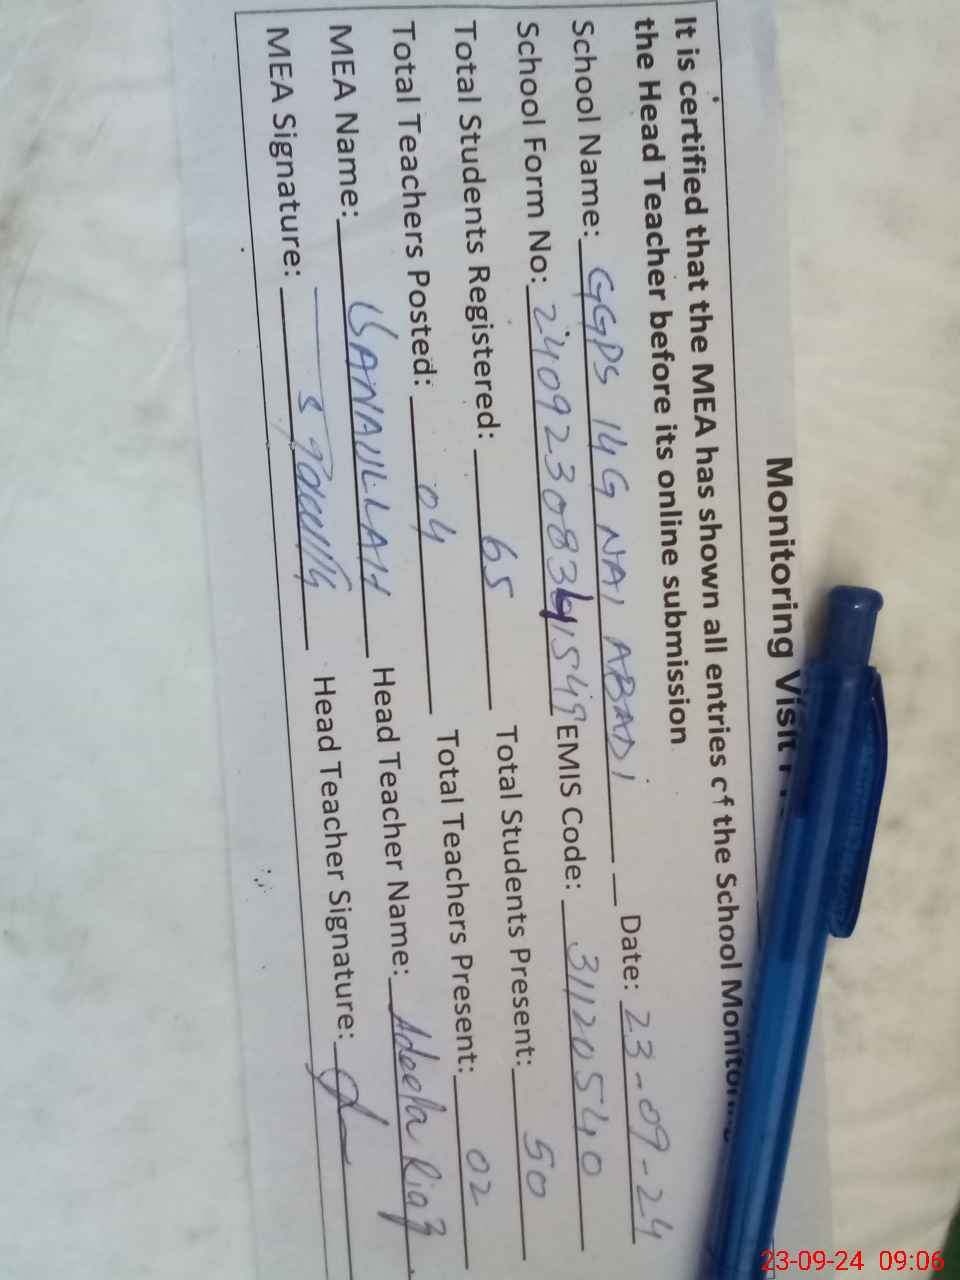 Monitoring Visit
It is certified that the MEA has shown all entries of the School
the Head Teacher before its online submission
School Name: GGPS 14G NAI ABADI Date: 23-09-24
School Form No: EMIS Code: 31120540
Total Students Registered: 65 Total Students Present: 50
Total Teachers Posted: 04 Total Teachers Present: 02
MEA Name: SANAULLAH Head Teacher Name: Adeela Riaz
MEA Signature: Head Teacher Signature:
23-09-24 09:06